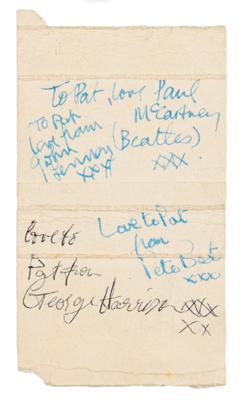 To Pat, love Paul
McCartney
(Beatles)
xxx.
To Pat
love from
John
Lennon
xxx
Love to Pat
from
Pete Best
xxx
love to
Pat from
George Harrison xxx
xx